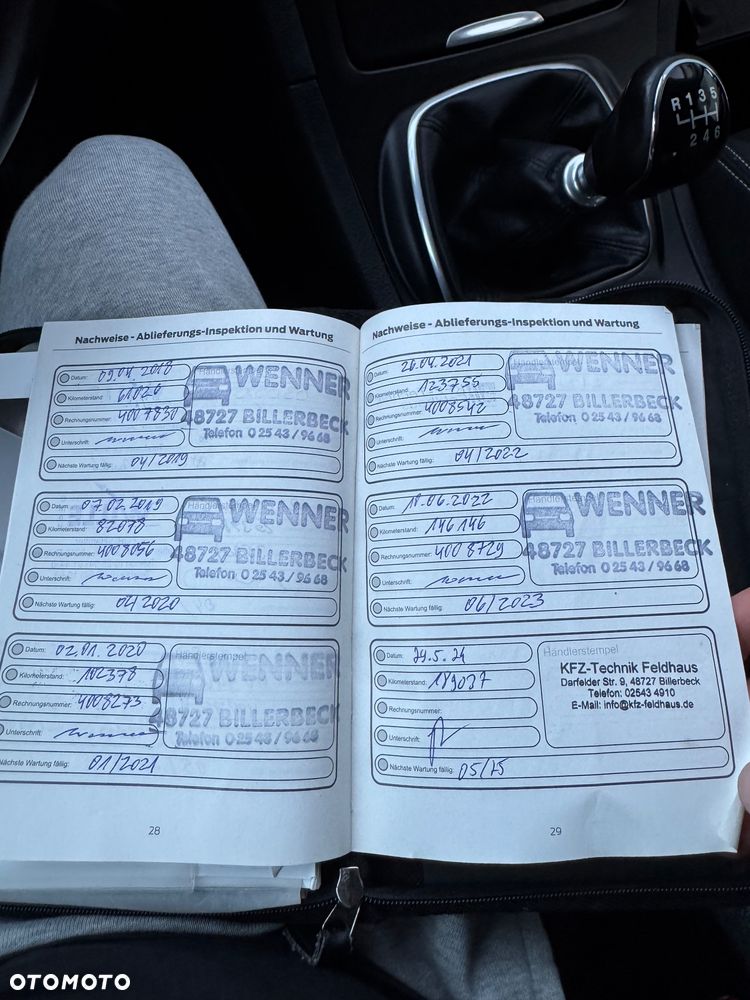 R 1 3 5
2 4 6
Nachweise - Ablieferungs-Inspektion und Wartung
Datum: 09.04.2018
Händlerstempel
Kilometerstand: 61020
Rechnungsnummer: 4007830
Unterschrift:
Nächste Wartung fällig: 04/2019
WENNER
48727 BILLERBECK
Telefon 0 25 43 / 96 68
Datum: 07.02.2019
Händlerstempel
Kilometerstand: 82078
Rechnungsnummer: 4008056
Unterschrift:
Nächste Wartung fällig: 04/2020
WENNER
48727 BILLERBECK
Telefon 0 25 43 / 96 68
Datum: 02.01.2020
Händlerstempel
Kilometerstand: 102378
Rechnungsnummer: 4008273
Unterschrift:
Nächste Wartung fällig: 01/2021
WENNER
48727 BILLERBECK
Telefon 0 25 43 / 96 68
28
Nachweise - Ablieferungs-Inspektion und Wartung
Datum: 26.04.2021
Händlerstempel
Kilometerstand: 123755
Rechnungsnummer: 4008542
Unterschrift:
Nächste Wartung fällig: 04/2022
WENNER
48727 BILLERBECK
Telefon 0 25 43 / 96 68
Datum: 18.06.2022
Händlerstempel
Kilometerstand: 146146
Rechnungsnummer: 4008729
Unterschrift:
Nächste Wartung fällig: 06/2023
WENNER
48727 BILLERBECK
Telefon 0 25 43 / 96 68
Datum: 24.5.24
Händlerstempel
Kilometerstand: 189037
Rechnungsnummer:
Unterschrift:
Nächste Wartung fällig: 05/25
KFZ-Technik Feldhaus
Darfelder Str. 9, 48727 Billerbeck
Telefon: 02543 4910
E-Mail: info@kfz-feldhaus.de
29
OTOMOTO